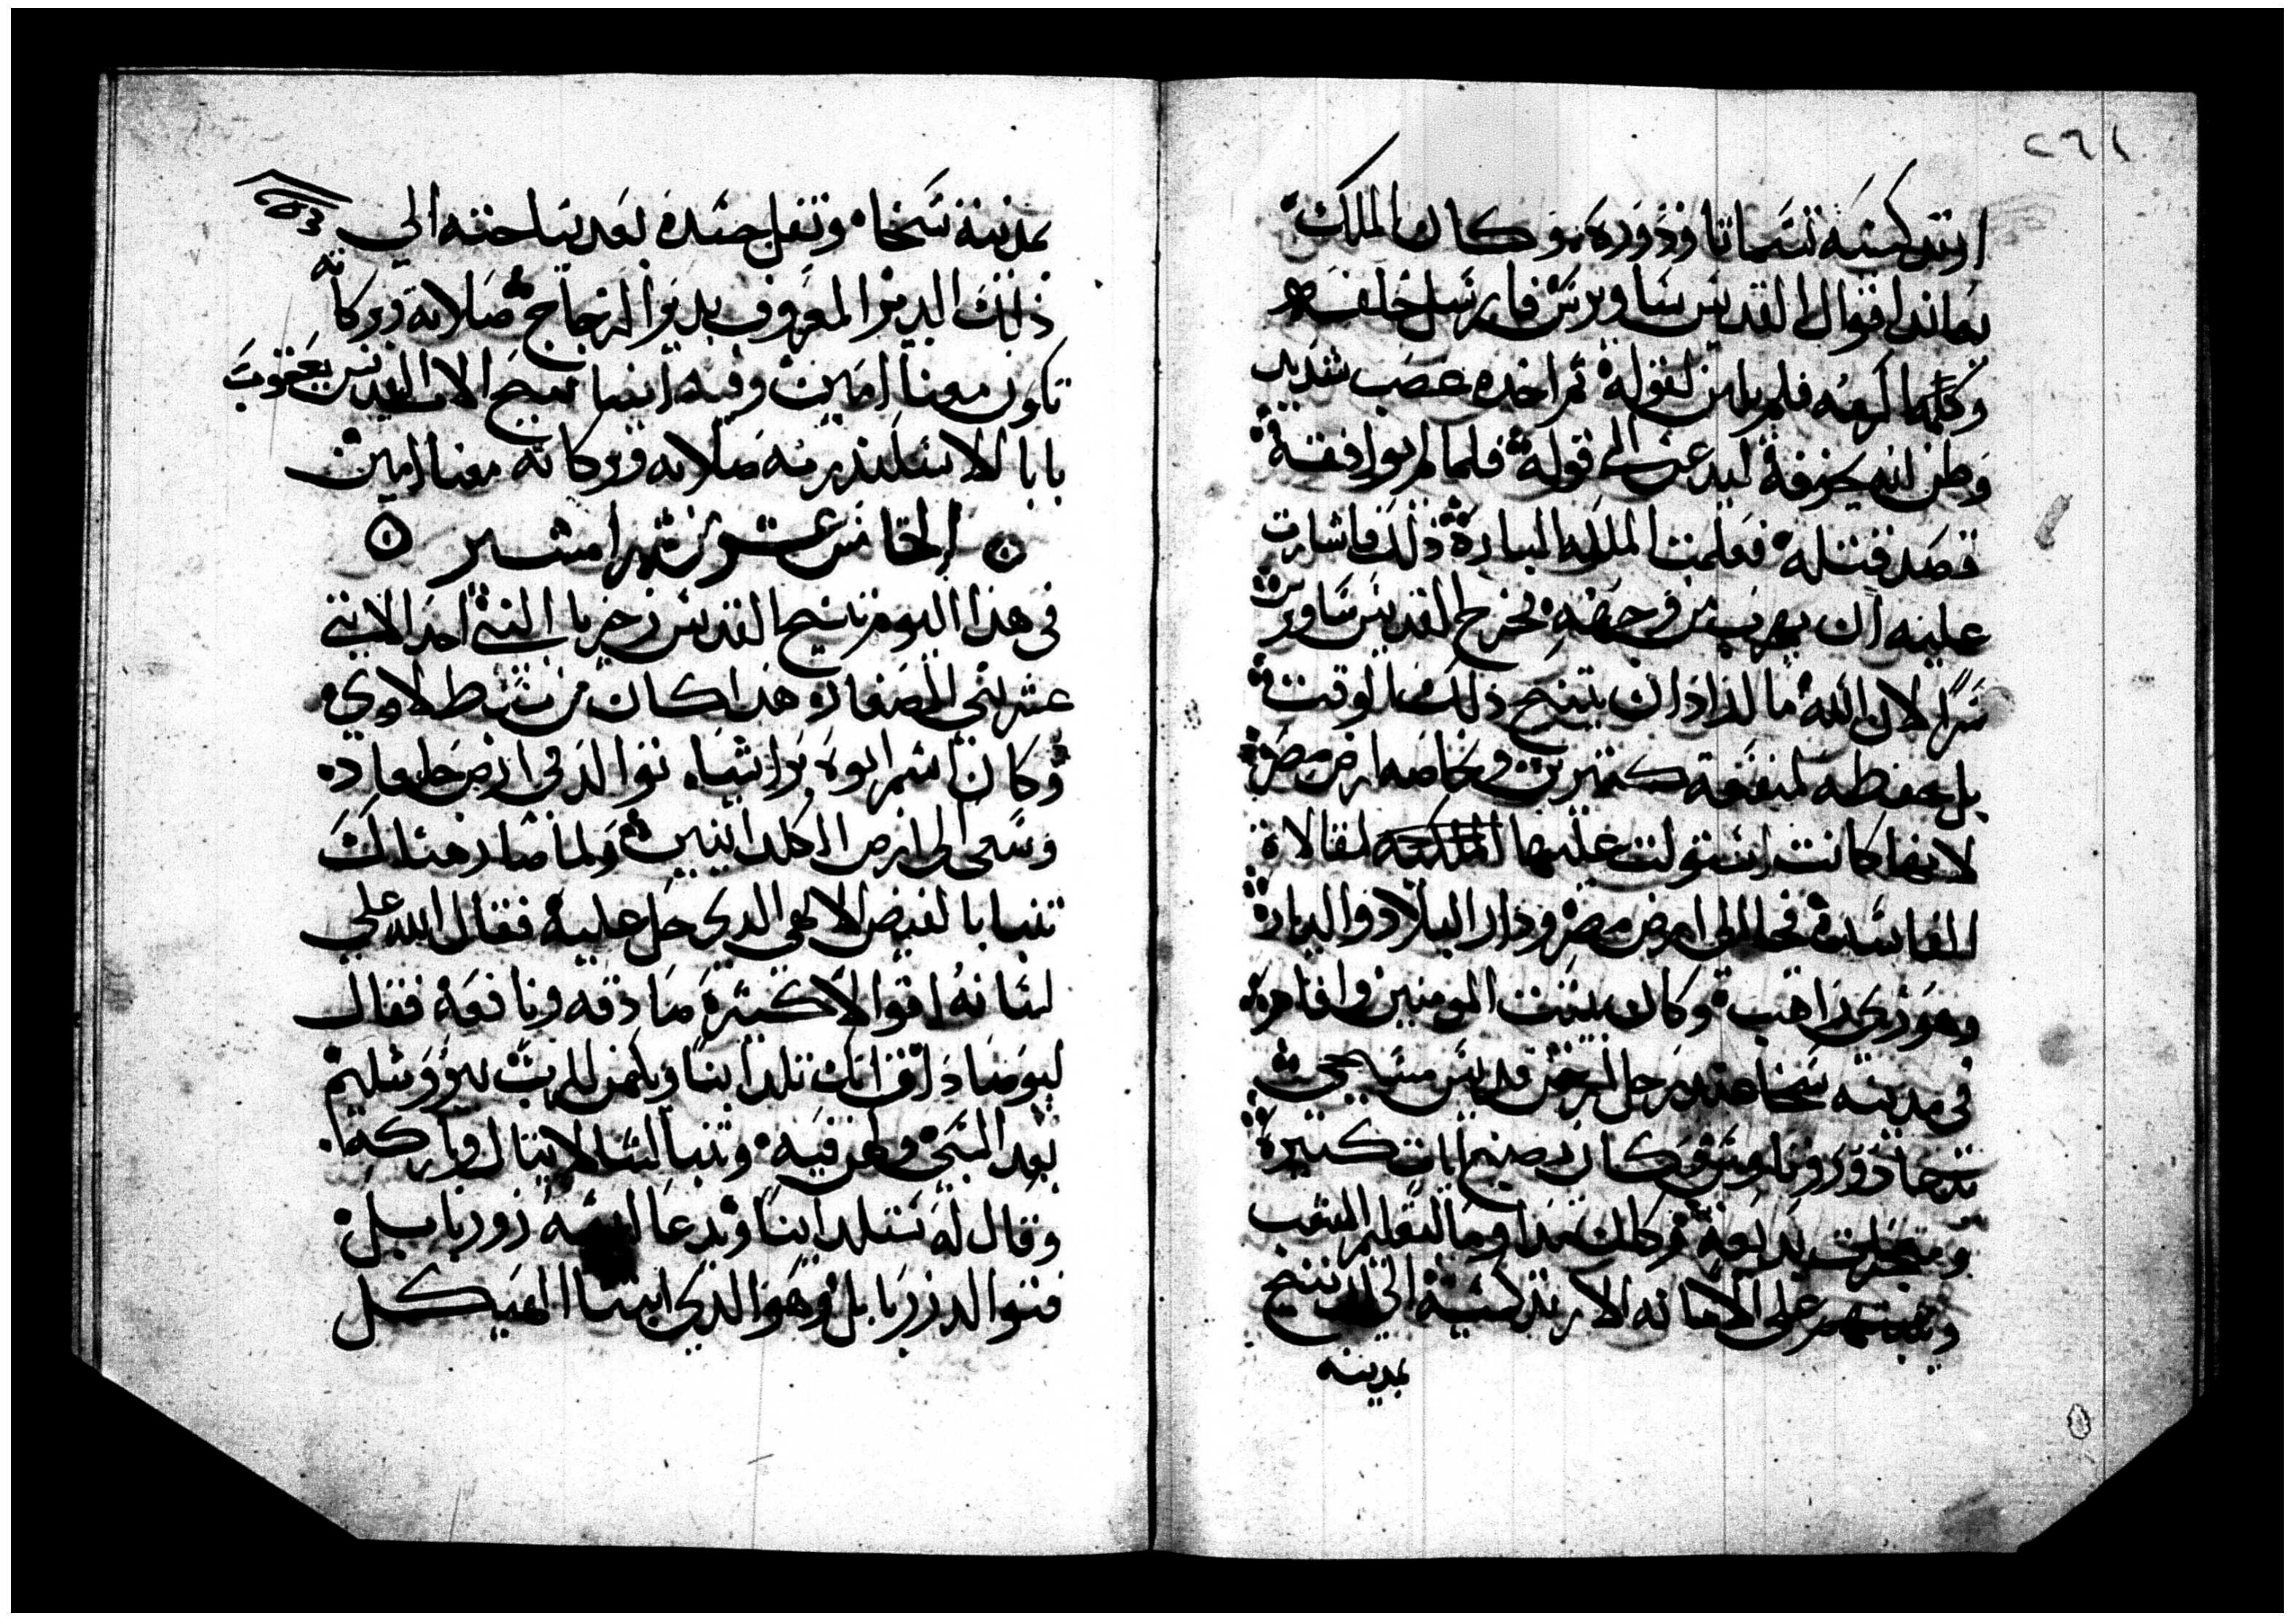 ٢٦١
ارتدكسية تسما تاوذوره وكان الملك
يعاند اقوال القديس ساويرس فارسل خلفه
وكلما لرفعه فلم يلين لقوله ثم اخده غضب شديد
وظن انه يخوفه ليدعن الى قوله فلما لم يوافقه
قصد قتله فعلمت الملكه الباره ذلك فاشارت
عليه ان يهرب من وجهه فخرج القديس ساويرس
سرا لان الله ما اراد ان يتنيح ذلك الوقت
بل يحفظه لمنفعة كثيرين وخاصه ارض مصر
لانها كانت استولت عليها الملكيه لمقالاة
الفاسده فجا الى ارض مصر ودار البلاد والدياره
وهو بزي راهب وكان يثبت المومنين واقام
في مدينة سخا عند رجل ارخن قديس مسيحي
يدعا دوروتاوس وكان يصنع ايات كثيره
ومعجزات بديعه وكان مداوما لتعليم الشعب
وتثبيتهم على الامانه الارتدكسية الى ان تنيح
بمدينه
بمدينة سخا ونقل جسده بعد نياحته الي
ذلك الدير المعروف بدير الزجاج صلاته وبركاته
تكون معنا امين وفيه ايضا تنيح الاب القديس يعقوب
بابا الاسكندريه صلاته وبركاته معنا امين
الخامس عشر من شهر امشير
في هذا اليوم تنيح القديس زخريا النبي احد الاثني
عشر نبي الصغار هذا كان من سبط لاوي
وكان اسم ابوه براشيا نوالد في ارض جلعاد
وسعى الى ارض الكلدانيين ولما صار هناك
تنبا بالفيض الالهي الدي حل عليه فقال الله علي
لسانه اقوالا كثيرة صادقه ونافعة فقال
ليوصاداق انك تلد ابنا ويكهن للرب بيروشليم
بعد السبي وفيه وتنبا لسالاتيال وباركه
وقال له ستلد ابنا وتدعا اسمه زوربابيل
فتوالد زربابل وهو الدي ابنا الهيكل